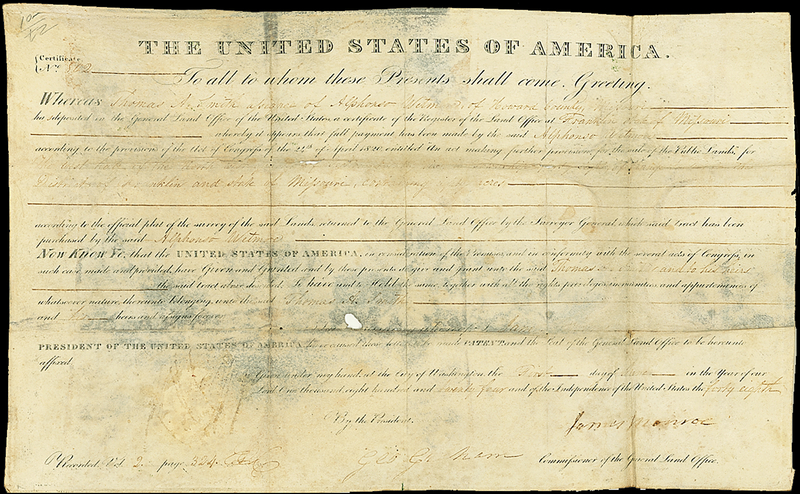 THE UNITED STATES OF AMERICA.
(Certificate
(No.
To all to whom these Presents shall come, Greeting.
Whereas Thomas A. Smith assignee of Alphonso Wetmore, of Howard County,
ha deposited in the General Land Office of the United States, a certificate of the Register of the Land Office at Franklin State of Missouri
whereby it appears that full payment has been made by the said Alphonso Wetmore
according to the provisions of the Act of Congress of the 24th of April 1820, entitled An act making further provision for the sale of the Public Lands, for
District of Franklin and State of Missouri, containing acres
according to the official plat of the survey of the said Lands, returned to the General Land Office by the Surveyor General, which said tract has been
purchased by the said Alphonso Wetmore
Now Know Ye, that the UNITED STATES OF AMERICA, in consideration of the Premises, and in conformity with the several acts of Congress, in
such case made and provided, have Given and Granted and by these presents do give and grant unto the said Thomas A. Smith and to his heirs
the said tract above described. To have and to Hold the same, together with all the rights privileges immunities and appurtenances of
whatsoever nature, thereunto belonging, unto the said Thomas A. Smith
and his heirs and assigns forever.
PRESIDENT OF THE UNITED STATES OF AMERICA, have caused these letters to be made PATENT, and the Seal of the General Land Office to be hereunto
affixed.
Given under my hand, at the City of Washington the First day of in the Year of our
Lord One thousand eight hundred and twenty four and of the Independence of the United States the forty eighth
By the President.
James Monroe
Recorded, Vol. 2 page 324
Geo: Graham Commissioner of the General Land Office.